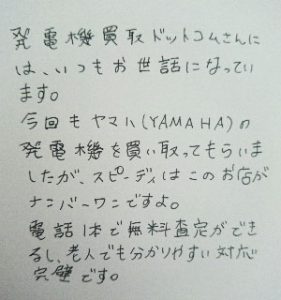 発電機買取ドットコムさんに
は、いつもお世話になってい
ます。
今回もヤマハ(YAMAHA)の
発電機を買い取ってもらいま
したが、スピーディはこのお店が
ナンバーワンですよ。
電話1本で無料査定ができ
るし、老人でも分かりやすい対応
完璧です。